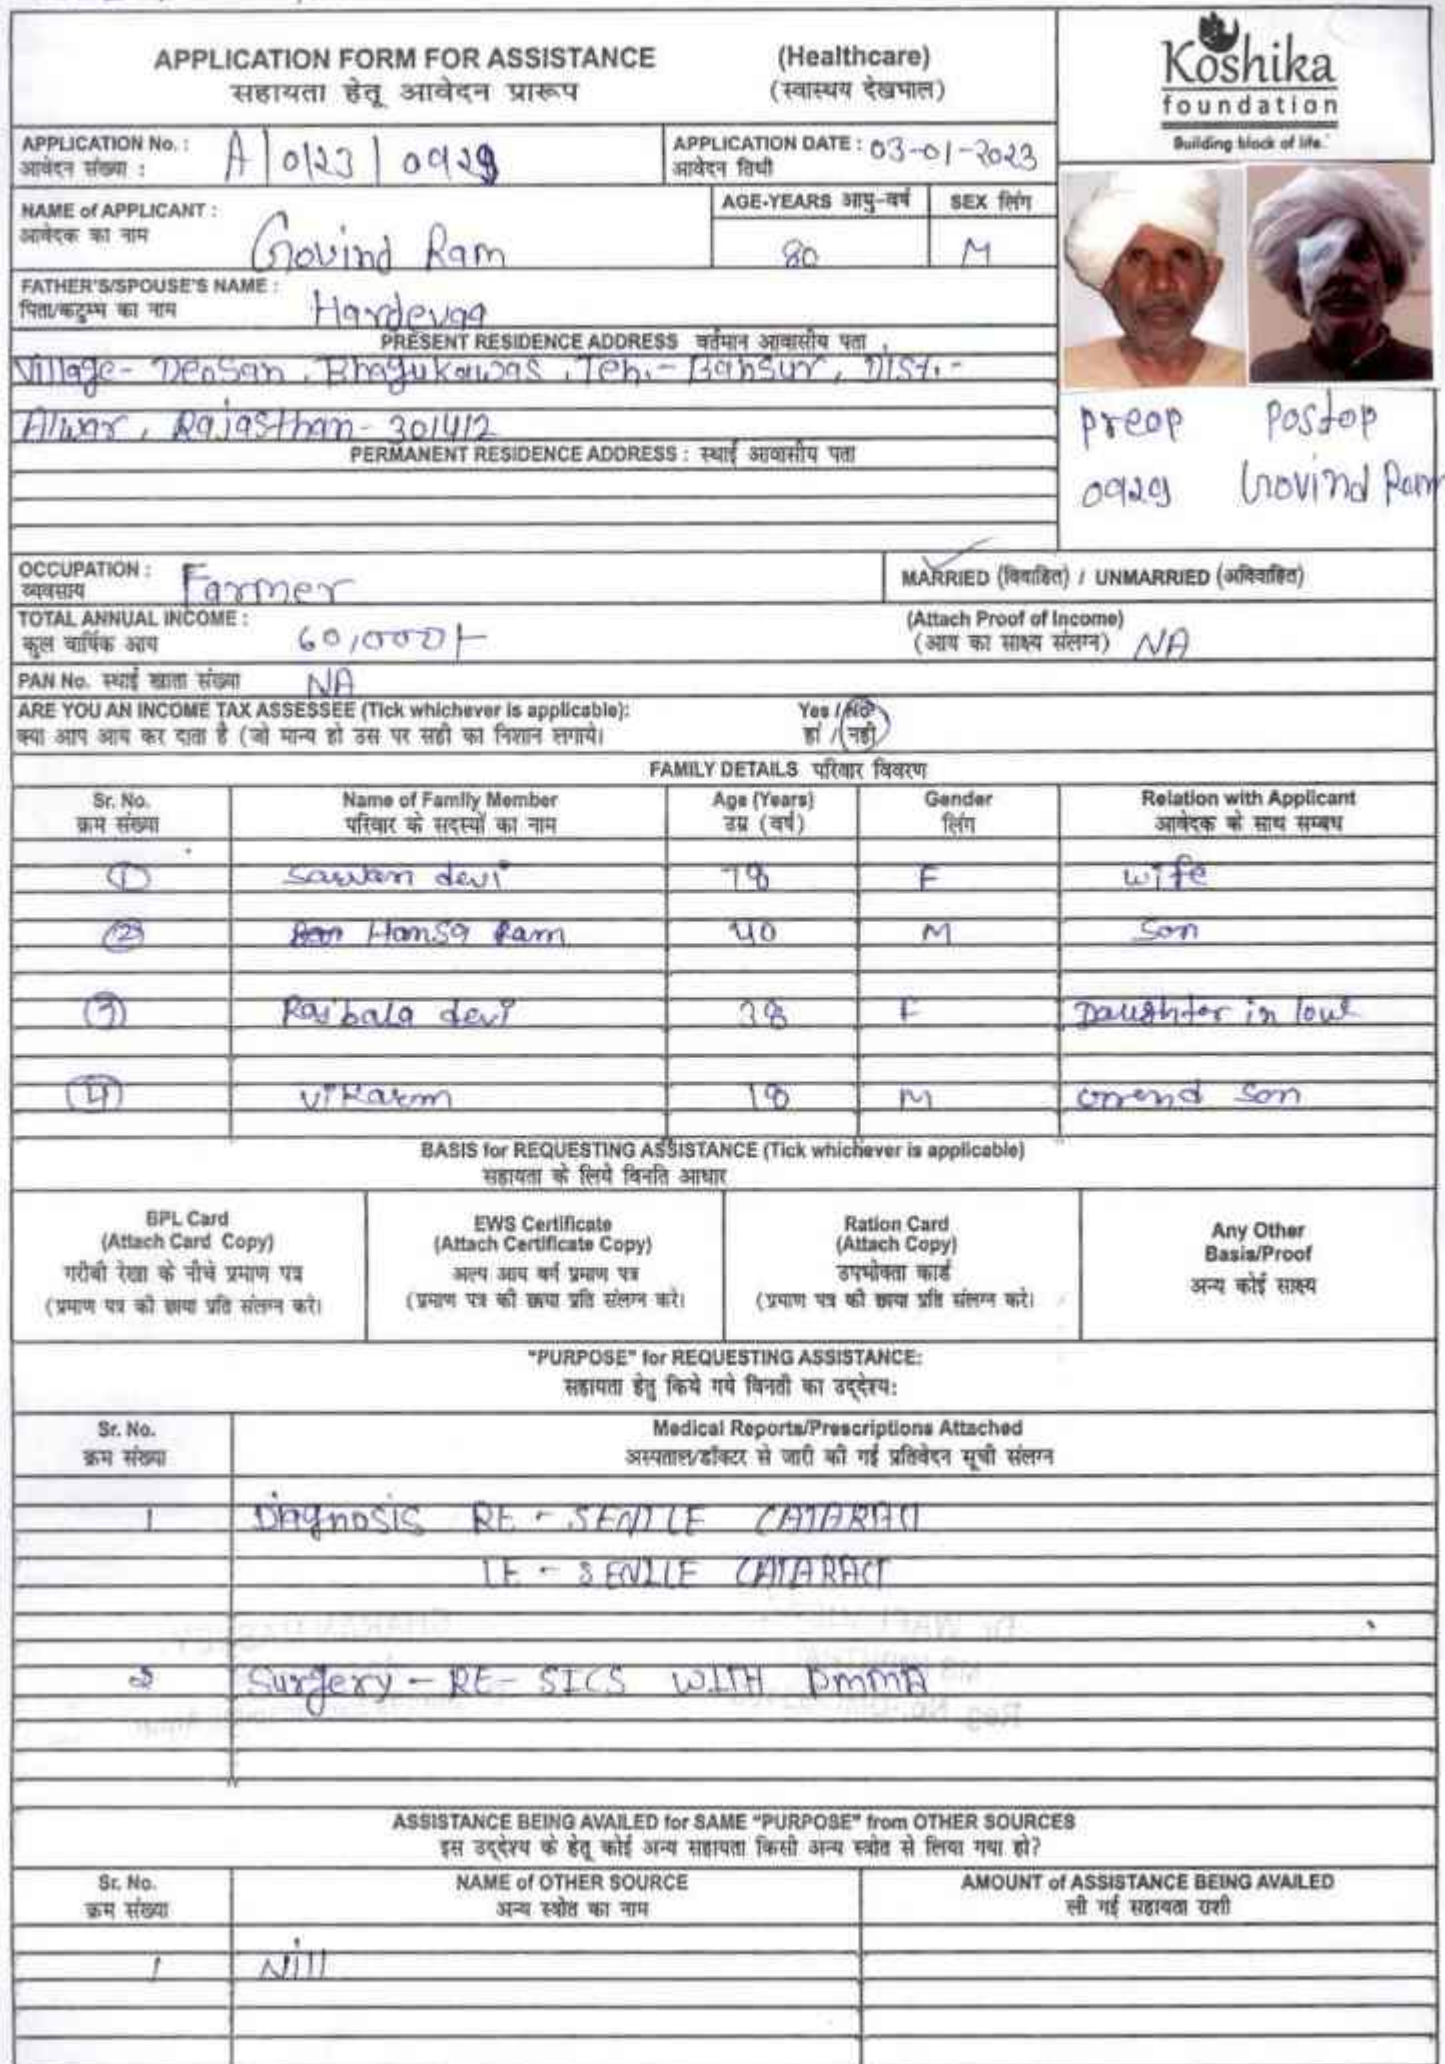 APPLICATION FORM FOR ASSISTANCE (Healthcare)
सहायता हेतू आवेदन प्रारूप (स्वास्थय देखभाल)
Koshika
foundation
Building block of life.
APPLICATION No. : A/0123/0929
आवेदन संख्या :
APPLICATION DATE : 03-01-2023
आवेदन तिथी
NAME of APPLICANT : Govind Ram
आवेदक का नाम
AGE-YEARS आयु-वर्ष 80
SEX लिंग M
FATHER'S/SPOUSE'S NAME :
पिता/कटुम्भ का नाम
PRESENT RESIDENCE ADDRESS वर्तमान आवासीय पता
Village- Bhagukawas, Teh.- Bansur, Dist.-
Alwar, Rajasthan- 301412
PERMANENT RESIDENCE ADDRESS : स्थाई आवासीय पता
preop Postop
0929 Govind Ram
OCCUPATION : Farmer
व्यवसाय
MARRIED (विवाहित) / UNMARRIED (अविवाहित)
TOTAL ANNUAL INCOME : 60,000/-
कुल वार्षिक आय
(Attach Proof of Income)
(आय का साक्ष्य संलग्न) NA
PAN No. स्थाई खाता संख्या NA
ARE YOU AN INCOME TAX ASSESSEE (Tick whichever is applicable): Yes / No
क्या आप आय कर दाता है (जो मान्य हो उस पर सही का निशान लगाये। हां / नही
FAMILY DETAILS परिवार विवरण
Sr. No. Name of Family Member Age (Years) Gender Relation with Applicant
क्रम संख्या परिवार के सदस्यों का नाम उम्र (वर्ष) लिंग आवेदक के साथ सम्बध
1 Sawan devi 78 F wife
2 Hansa Ram 40 M Son
3 Rajbala devi 38 F Daughter in law
4 Vikarm 18 M Son
BASIS for REQUESTING ASSISTANCE (Tick whichever is applicable)
सहायता के लिये विनति आधार
BPL Card
(Attach Card Copy)
गरीबी रेखा के नीचे प्रमाण पत्र
(प्रमाण पत्र की छाया प्रति संलग्न करे।
EWS Certificate
(Attach Certificate Copy)
अल्प आय वर्ग प्रमाण पत्र
(प्रमाण पत्र की छाया प्रति संलग्न करे।
Ration Card
(Attach Copy)
उपभोक्ता कार्ड
(प्रमाण पत्र की छाया प्रति संलग्न करे।
Any Other
Basis/Proof
अन्य कोई साक्ष्य
"PURPOSE" for REQUESTING ASSISTANCE:
सहायता हेतु किये गये विनती का उद्देश्य:
Sr. No. Medical Reports/Prescriptions Attached
क्रम संख्या अस्पताल/डॉक्टर से जारी की गई प्रतिवेदन सूची संलग्न
1 Diagnosis RE - SENILE CATARACT
LE - SENILE CATARACT
2 Surgery - RE- SICS WITH PMMA
ASSISTANCE BEING AVAILED for SAME "PURPOSE" from OTHER SOURCES
इस उद्देश्य के हेतू कोई अन्य सहायता किसी अन्य स्त्रोत से लिया गया हो?
Sr. No. NAME of OTHER SOURCE AMOUNT of ASSISTANCE BEING AVAILED
क्रम संख्या अन्य स्त्रोत का नाम ली गई सहायता राशी
1 Nill